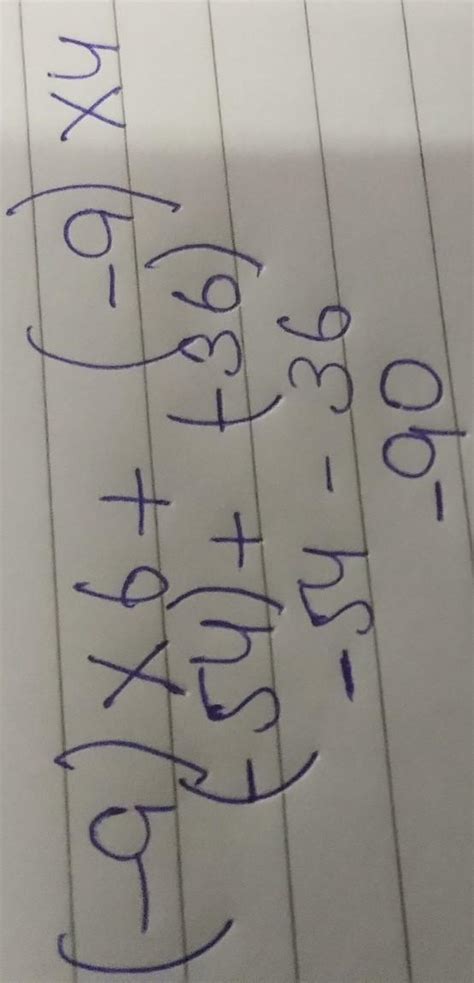 (-9) x 6 + (-9) x 4
(-54) + (-36)
-54 - 36
-90